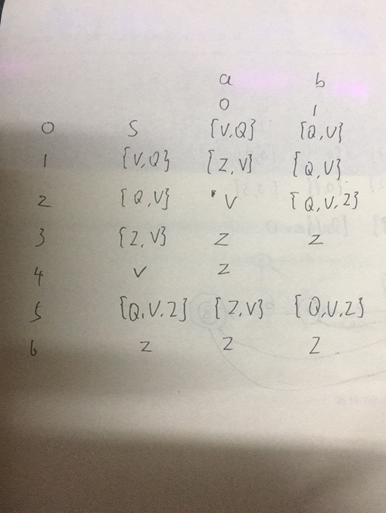 a b
0 1
0 S {V,Q} {Q,U}
1 {V,Q} {Z,V} {Q,U}
2 {Q,U} V {Q,U,Z}
3 {Z,V} Z Z
4 V Z
5 {Q,U,Z} {Z,V} {Q,U,Z}
6 Z Z Z